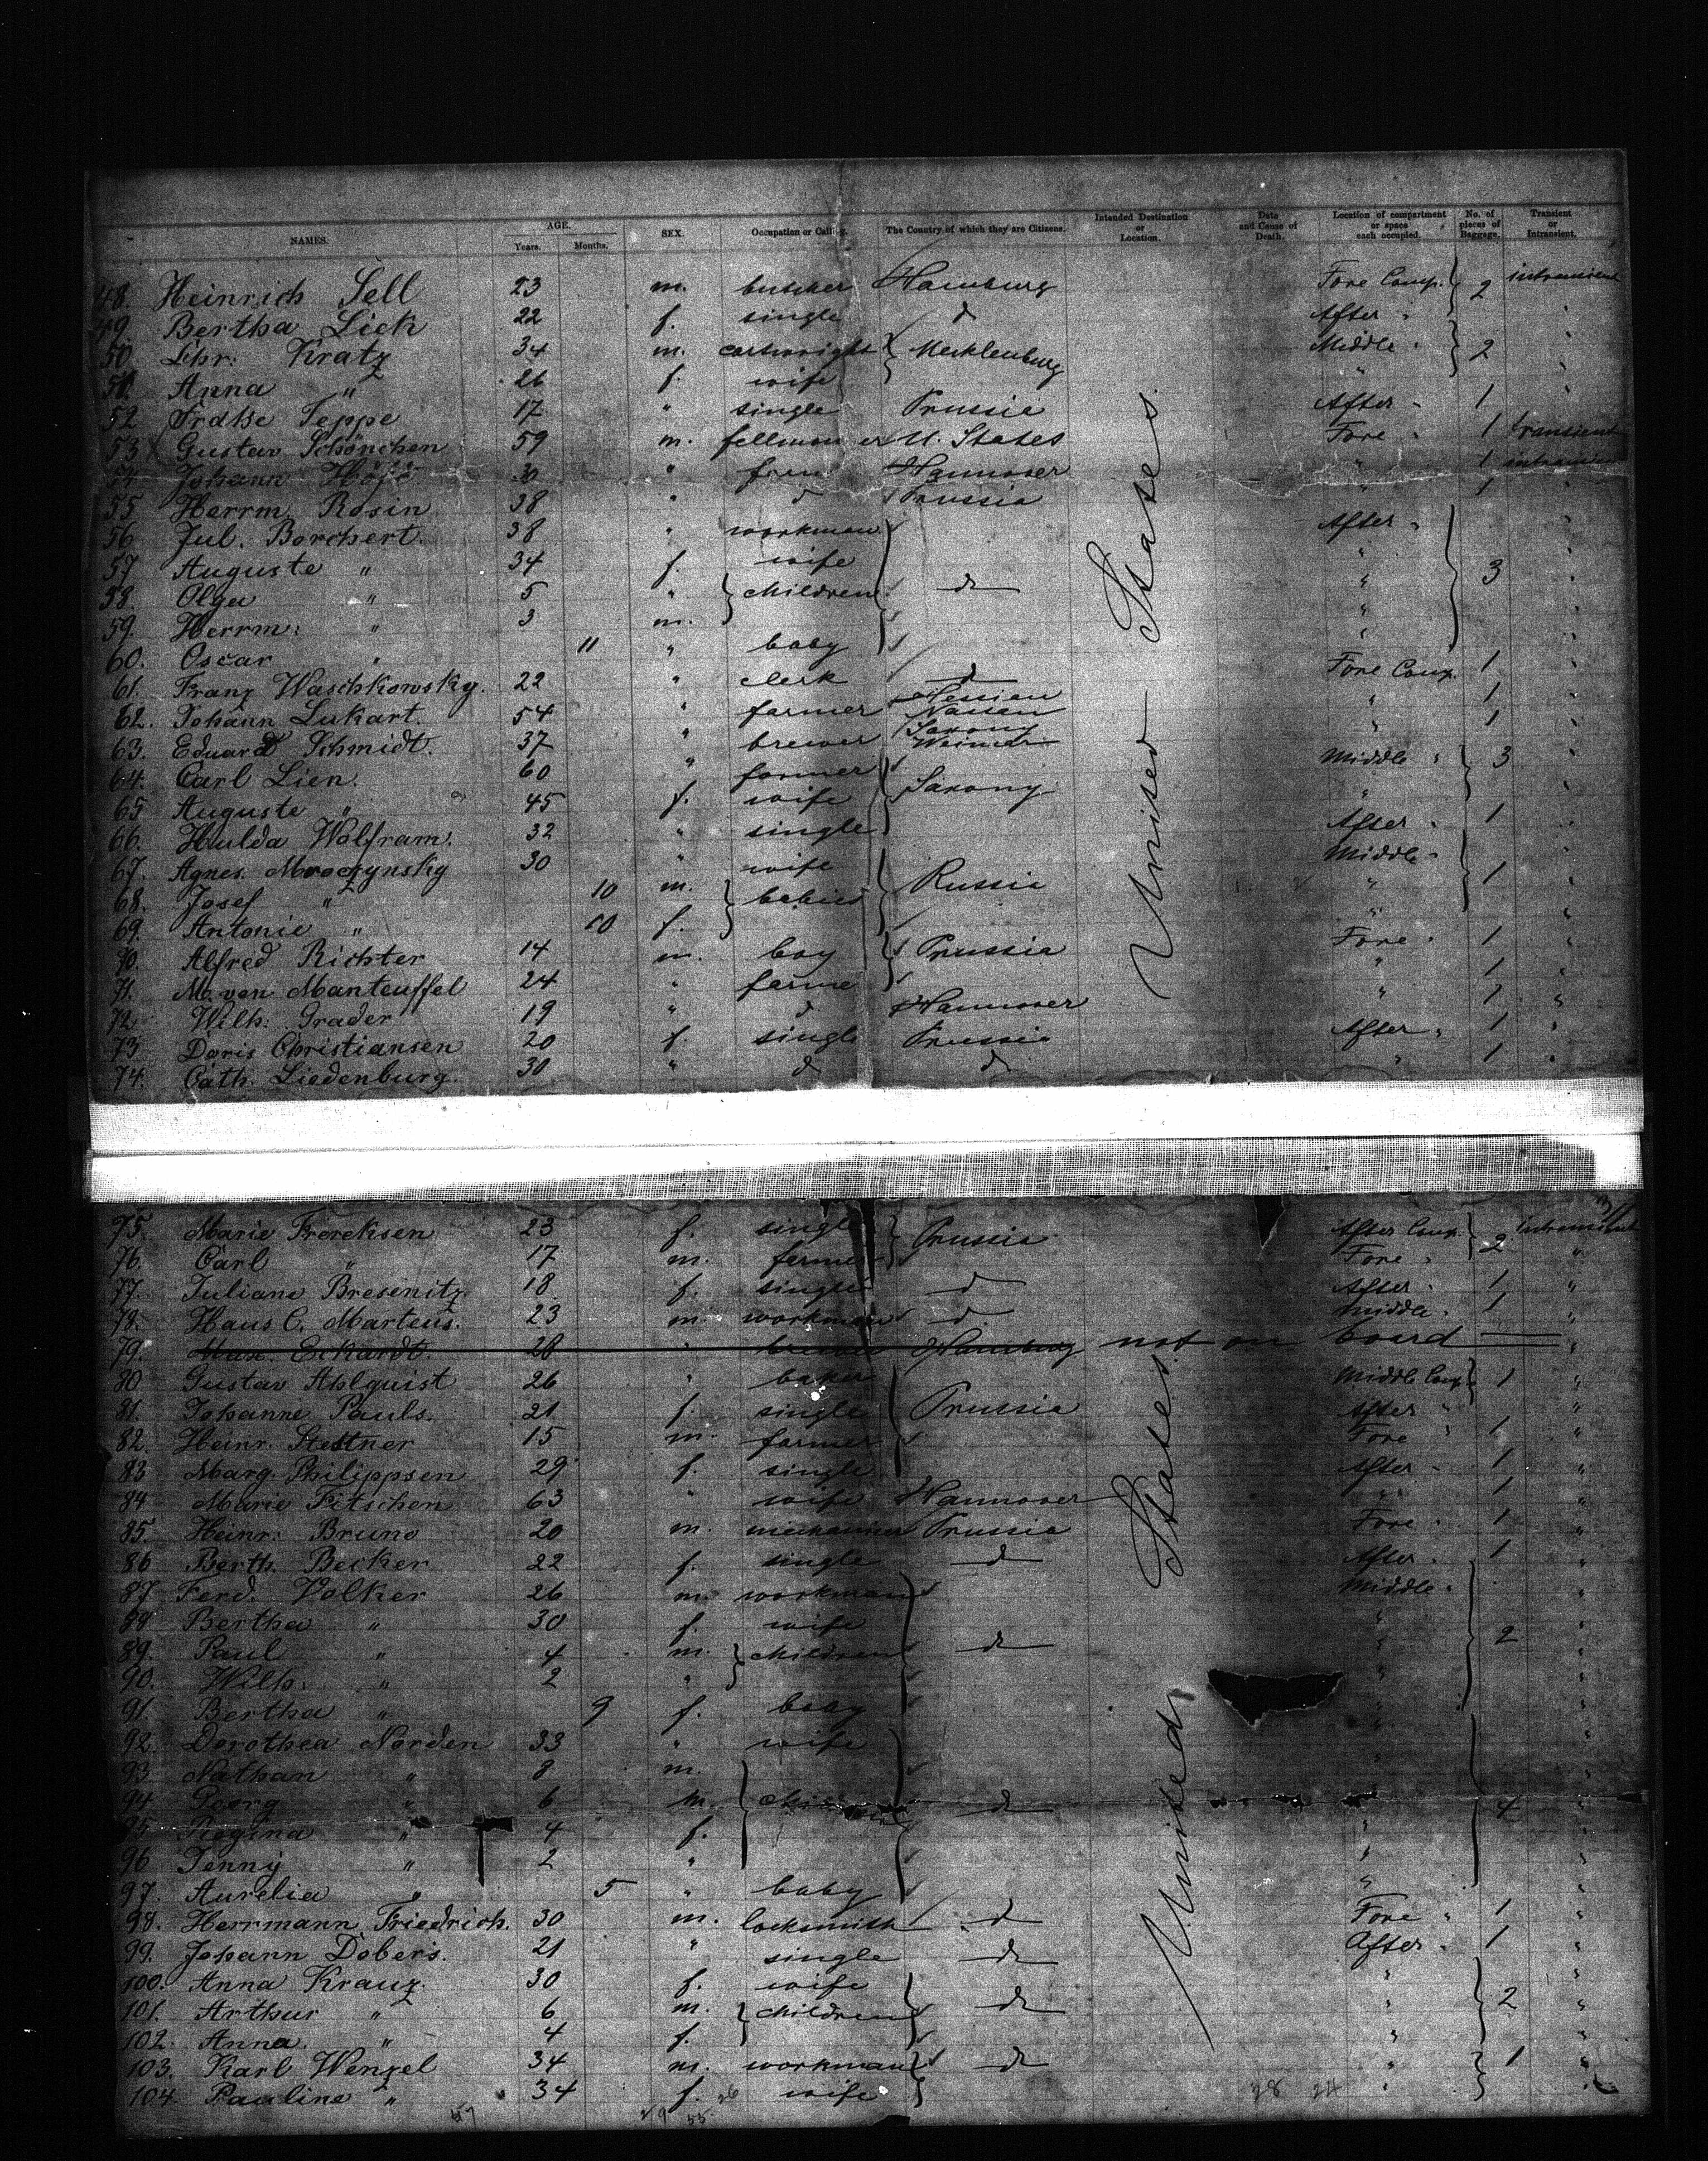 NAMES. AGE. Years. Months. SEX. Occupation or Calling. The Country of which they are Citizens. Intended Destination or Location. Date and Cause of Death. Location of compartment or space each occupied. No. of pieces of Baggage. Transient or Intransient.
48. Heinrich Sell 23 m. butcher Hamburg Fore Comp. 2 intransient
49. Bertha Lick 22 f. single d After "
50. Chr: Kratz 34 m. cartwright Mecklenburg Middle " 2 "
51. Anna " 26 f. wife " "
52 Frdke Teppe 17 " single Prussia After " 1 "
53 Gustav Schönchen 59 m. U. States Fore " 1 transient
54 Johann 30 " Hannover " 1
55 Herrm. Rosin 38 " d Prussia " 1 "
56 Jul. Borchert. 38 " workman After " "
57 Auguste " 34 f. wife " 3 "
58. Olga " 5 " children d " "
59. Herrm: " 3 m. " "
60. Oscar " 11 " baby " "
61. Franz Waschkowsky. 22 " clerk d Fore Comp. 1 "
62. Johann Lukart. 54 " farmer Hessian Nassau " 1 "
63. Eduard Schmidt. 37 " brewer Saxony Weimar " 1 "
64. Carl Lien. 60 " farmer Saxony Middle " 3 "
65 Auguste " 45 f. wife " "
66. Hulda Wolfram. 32 " single After " 1 "
67. Agnes Mroczynsky 30 " wife Russia Middle " 1 "
68. Josef " 10 m. babies " "
69. Antonie " 10 f. " "
70. Alfred Richter 14 m. boy Prussia Fore " 1 "
71. M. von Manteuffel 24 " farme " 1 "
72. Wilh. Grader 19 " d Hannover " 1 "
73 Doris Christiansen 20 f. single Prussia After " 1 "
74. Cath. Liedenburg. 30 " d d " 1 "
United States.
75. Marie Frercksen 23 f. single Prussia After Comp. 2 intransient
76. Carl " 17 m. farmer Fore " "
77. Juliane Bresinitz. 18 f. single d After " 1 "
78. Hans C. Martens. 23 m. workman d. Middle " 1 "
79. Max. Eckardt. 28 " brewer Hamburg not on board "
80 Gustav Ahlquist 26 " baker Prussia Middle Comp. 1 "
81. Johanne Pauls. 21 f. single After " "
82. Heinr. Stettner 15 m. farmer Fore 1 "
83 Marg. Philippsen 29 f. single After " 1 "
84 Marie Fitschen 63 " wife Hannover " 1 "
85. Heinr: Bruno 20 m. Prussia Fore " 1 "
86 Berth. Becker 22 f. single d After " 1 "
87. Ferd. Volker 26 m. workman Middle " "
88 Bertha " 30 f. wife " "
89. Paul " 4 m. children d " 2 "
90. Wilh: " 2 " " "
91. Bertha " 9 f. baby " "
92. Dorothea Norden 33 " wife " "
93. Nathan " 8 m. " "
94 Georg " 6 m. d " 4 "
95. Regina " 4 f. " "
96 Jenny " 2 " " "
97. Aurelia " 5 " baby " "
98. Herrmann Friedrich. 30 m. locksmith d Fore " 1 "
99. Johann Dobers. 21 " single d After " 1 "
100. Anna Kranz. 30 f. wife " "
101. Arthur " 6 m. children d " 2 "
102. Anna. " 4 f. " "
103. Karl Wenzel 34 m. workman d " 1 "
104. Pauline " 34 f. wife " "
United States.
57 29 55 26 28 24